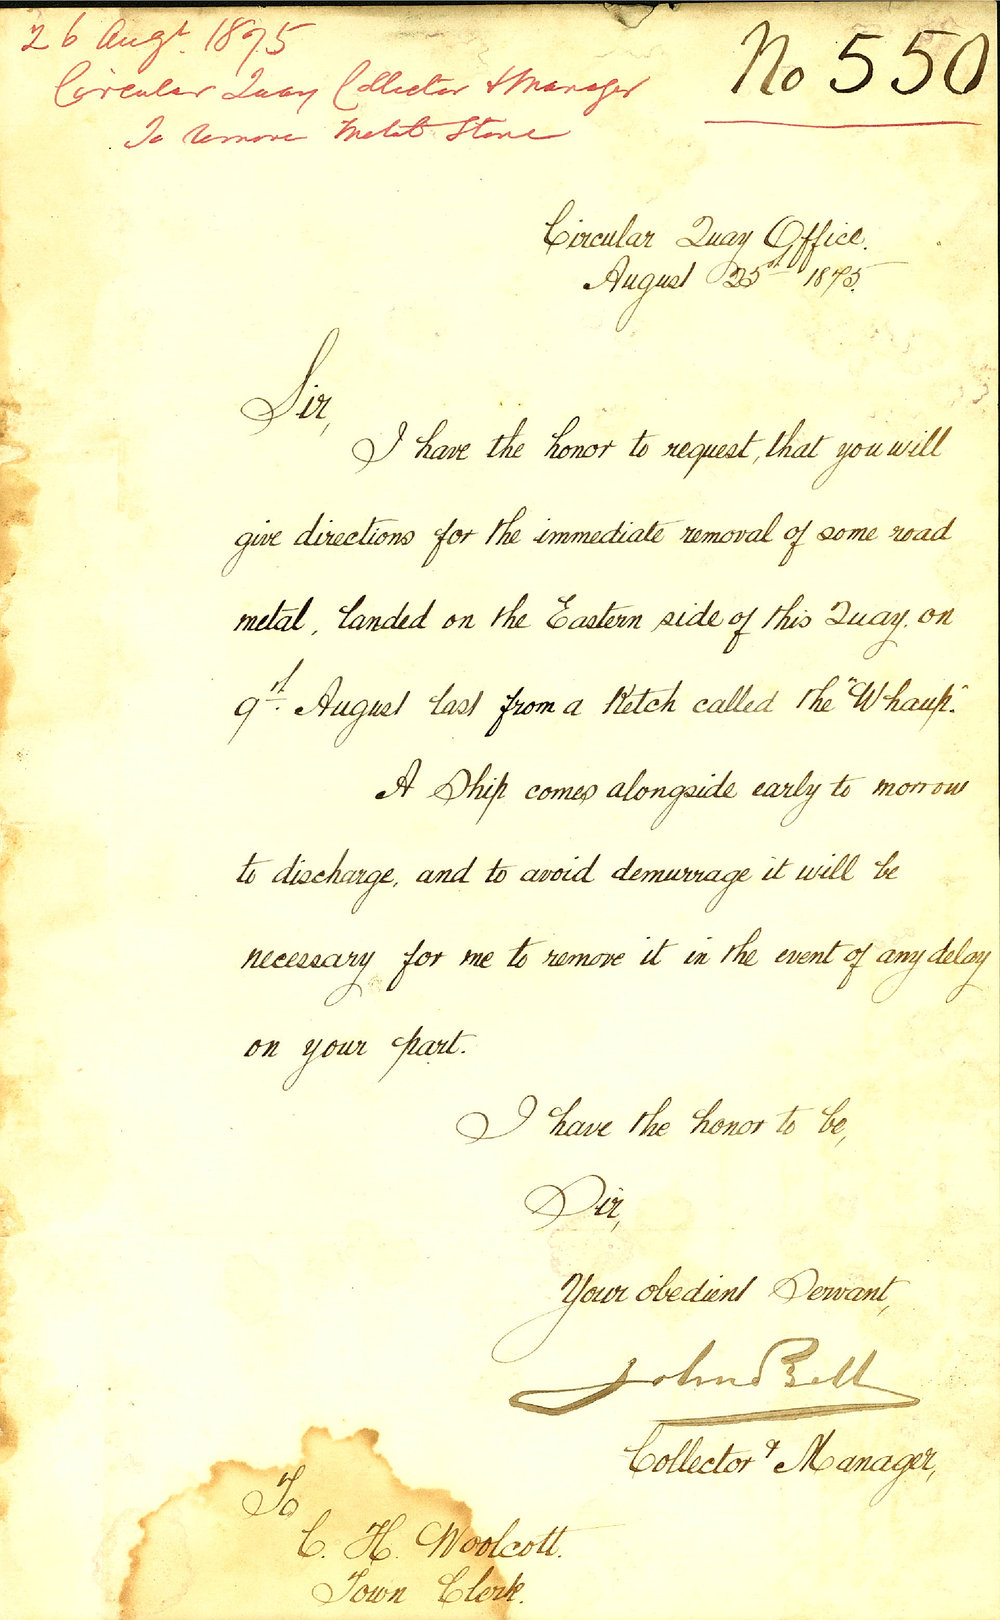 26 Augt. 1875
No 550
Circular Quay Collector & Manager
To remove metal Stone
Circular Quay Office.
August 25th 1875.
Sir,
I have the honor to request, that you will
give directions for the immediate removal of some road
metal, landed on the Eastern side of this Quay, on
9th. August last from a Ketch called the "Whaup".
A Ship comes alongside early to morrow
to discharge, and to avoid demurrage it will be
necessary for me to remove it in the event of any delay
on your part.
I have the honor to be,
Sir,
Your obedient Servant,
John Bell
Collector & Manager,
To
C. H. Woolcott.
Town Clerk.